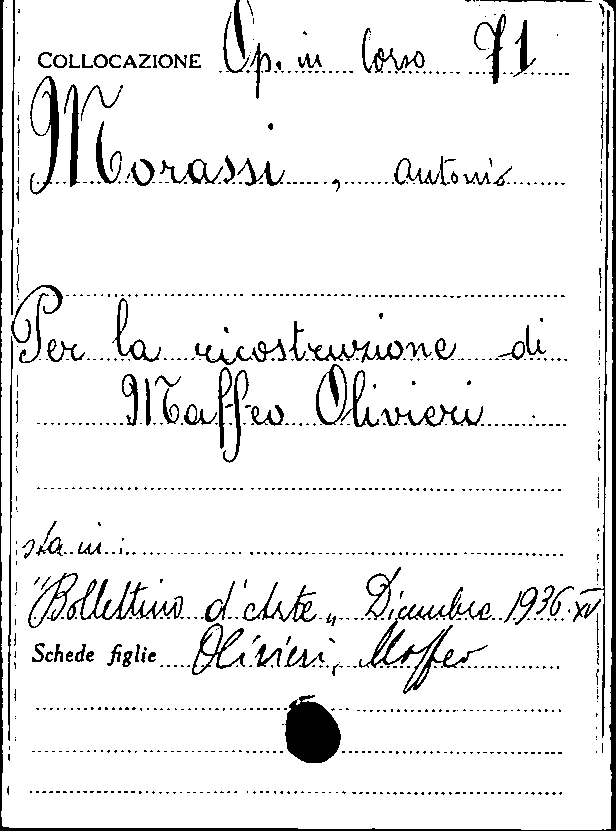 COLLOCAZIONE Op. in Corso 71
Morassi, Antonio
Per la ricostruzione di
Maffeo Olivieri
sta in:
"Bollettino d'Arte" Dicembre 1936. XV
Schede figlie Olivieri, Maffeo